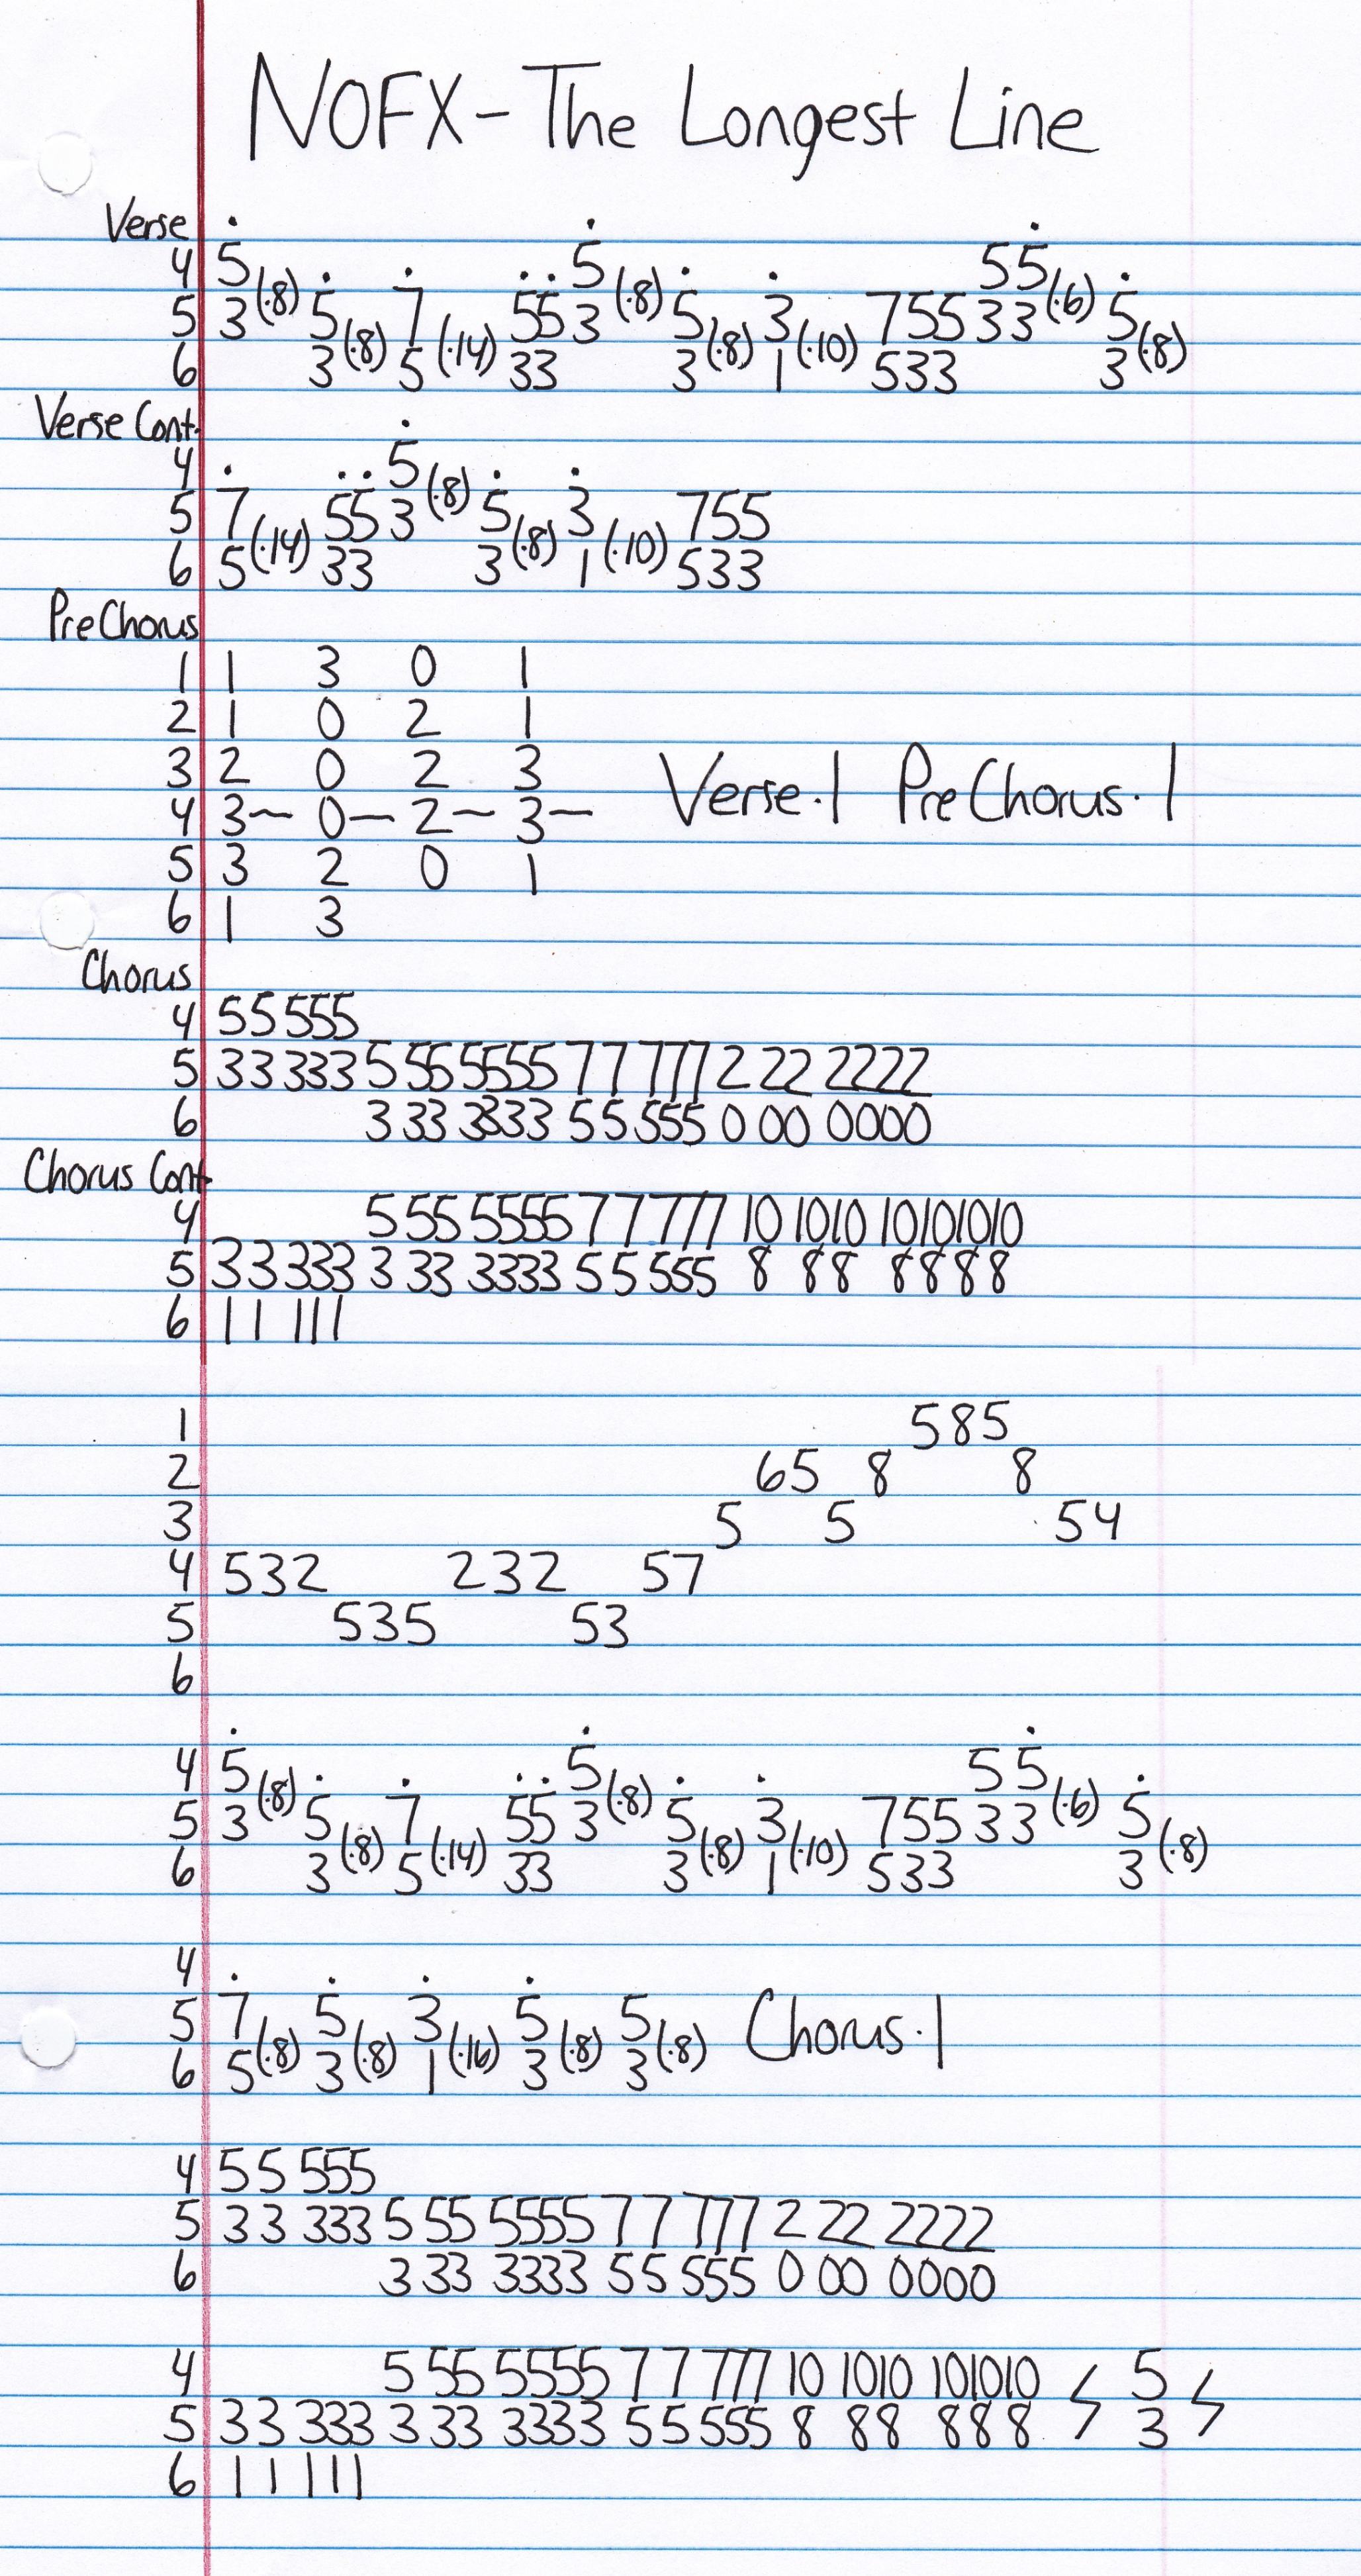 NOFX - The Longest Line
Verse
4 5 5 55
5 3 (·8) 5 7 55 3 (·8) 5 3 755 33 (·6) 5
6 3 (·8) 5 (·14) 33 3 (·8) 1 (·10) 533 3 (·8)
Verse Cont.
4 5
5 7 55 3 (·8) 5 3 755
6 5 (·14) 33 3 (·8) 1 (·10) 533
PreChorus
1 1 3 0 1
2 1 0 2 1
3 2 0 2 3
4 3~ 0— 2~ 3— Verse·1 PreChorus·1
5 3 2 0 1
6 1 3
Chorus
4 55 555
5 33 333 5 55 5555 77 777 2 22 2222
6 3 33 3333 55 555 0 00 0000
Chorus Cont.
4 5 55 5555 77 777 10 1010 10101010
5 33 333 3 33 3333 55 555 8 88 8888
6 11 111
1 585
2 65 8 8
3 5 5 54
4 532 232 57
5 535 53
6
4 5 5 55
5 3 (·8) 5 7 55 3 (·8) 5 3 755 33 (·6) 5
6 3 (·8) 5 (·14) 33 3 (·8) 1 (·10) 533 3 (·8)
4
5 7 5 3 5 5 Chorus·1
6 5 (·8) 3 (·8) 1 (·16) 3 (·8) 3 (·8)
4 55 555
5 33 333 5 55 5555 77 777 2 22 2222
6 3 33 3333 55 555 0 00 0000
4 5 55 5555 77 777 10 1010 101010 5
5 33 333 3 33 3333 55 555 8 88 888 3
6 11 111